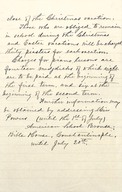 close of the Christmas vacation.
Those who are obliged to remain
in school during the Christmas
and Easter vacations will be charged
thirty piastres for each vacation.
Charges for piano lessons are
fourteen medjidies of which eight
are to be paid at the beginning of
the first term, and six at the
beginning of the second term.
Further information may
be obtained by addressing Miss
Powers (until the 1st of July)
American School
Bible House, Constantinople,
until July 20th.